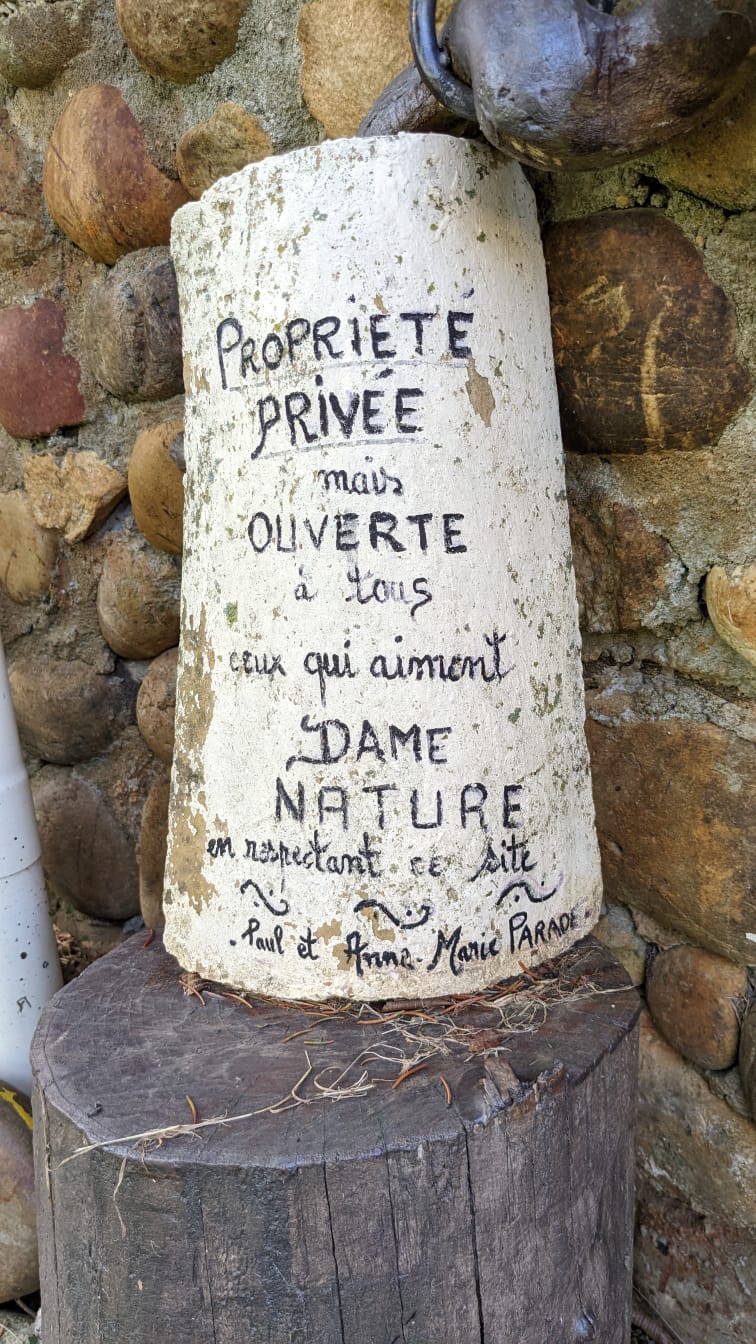 PROPRIÉTÉ
PRIVÉE
mais
OUVERTE
à tous
ceux qui aiment
DAME
NATURE
en respectant ce site
. Paul et Anne-Marie PARADE.